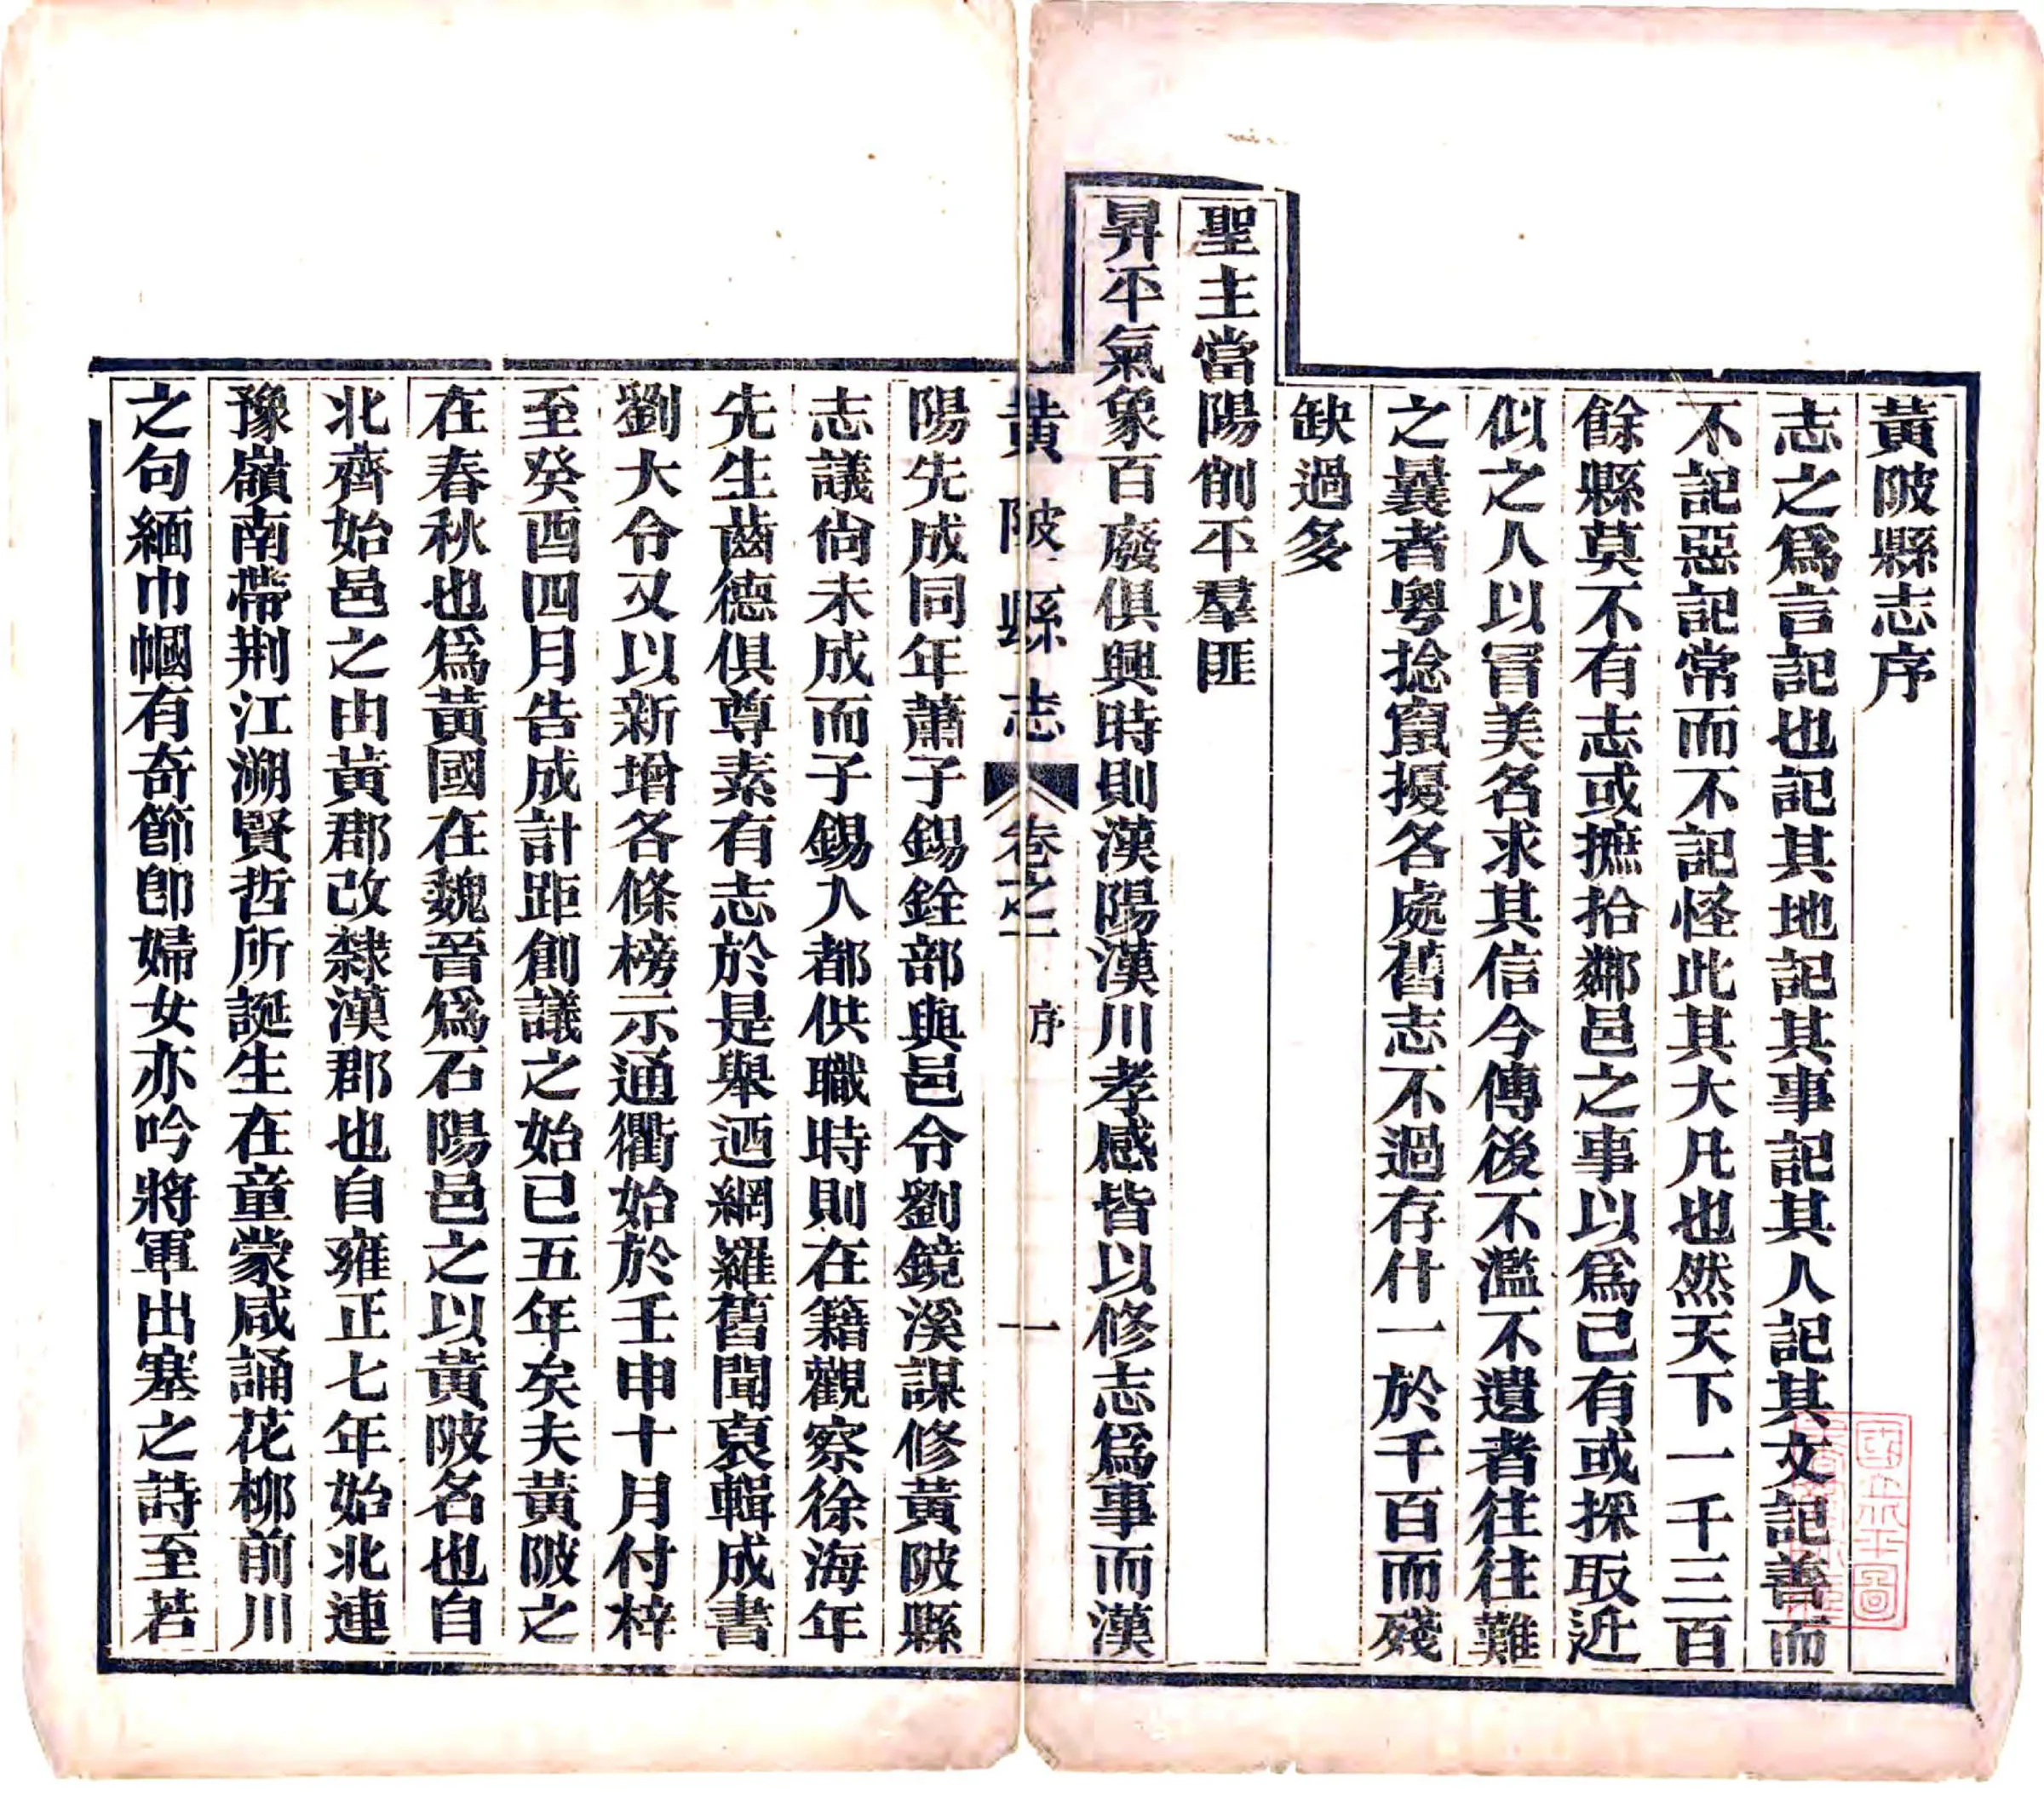 黃陂縣志序
志之爲言記也記其地記其事記其人記其文記善而
不記惡記常而不記怪此其大凡也然天下一千三百
餘縣莫不有志或摭拾鄰邑之事以爲己有或採取近
似之人以冒美名求其信今傳後不濫不遺者往往難
之曩者粵捻竄擾各處舊志不過存什一於千百而殘
缺過多
聖主當陽削平羣匪
昇平氣象百廢俱興時則漢陽漢川孝感皆以修志爲事而漢
黃陂縣志 卷之一 序 一
陽先成同年蕭子錫銓部與邑令劉鏡溪謀修黃陂縣
志議尙未成而子錫入都供職時則在籍觀察徐海年
先生齒德俱尊素有志於是舉迺網羅舊聞裒輯成書
劉大令又以新增各條榜示通衢始於壬申十月付梓
至癸酉四月告成計距創議之始已五年矣夫黃陂之
在春秋也爲黃國在魏晉爲石陽邑之以黃陂名也自
北齊始邑之由黃郡改隸漢郡也自雍正七年始北連
豫嶺南帶荆江溯賢哲所誕生在童蒙咸誦花柳前川
之句緬巾幗有奇節卽婦女亦吟將軍出塞之詩至若